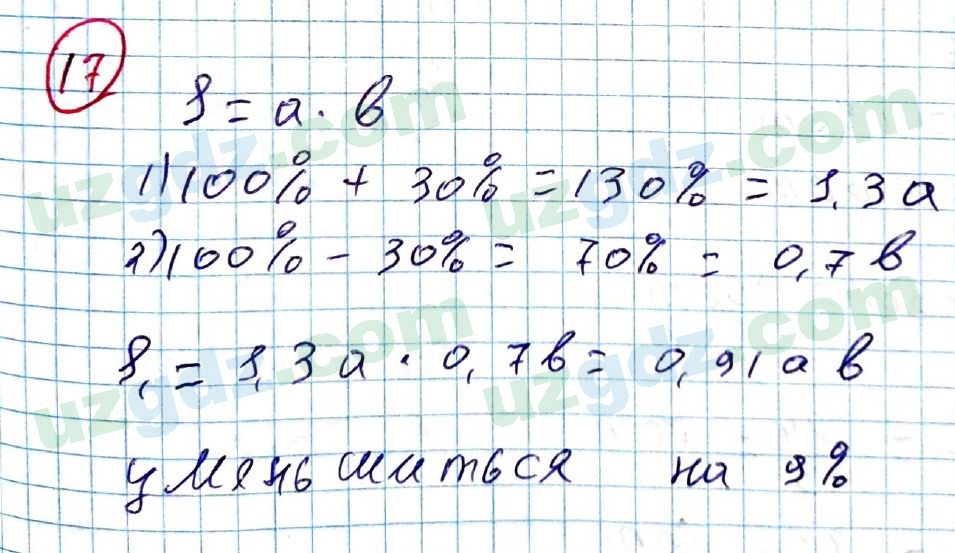 17
S = a · в
1) 100% + 30% = 130% = 1,3 а
2) 100% - 30% = 70% = 0,7 в
S₁ = 1,3 а · 0,7 в = 0,91 а в
уменьшиться на 9%
uzgdz.com
uzgdz.com
uzgdz.com
uzgdz.com